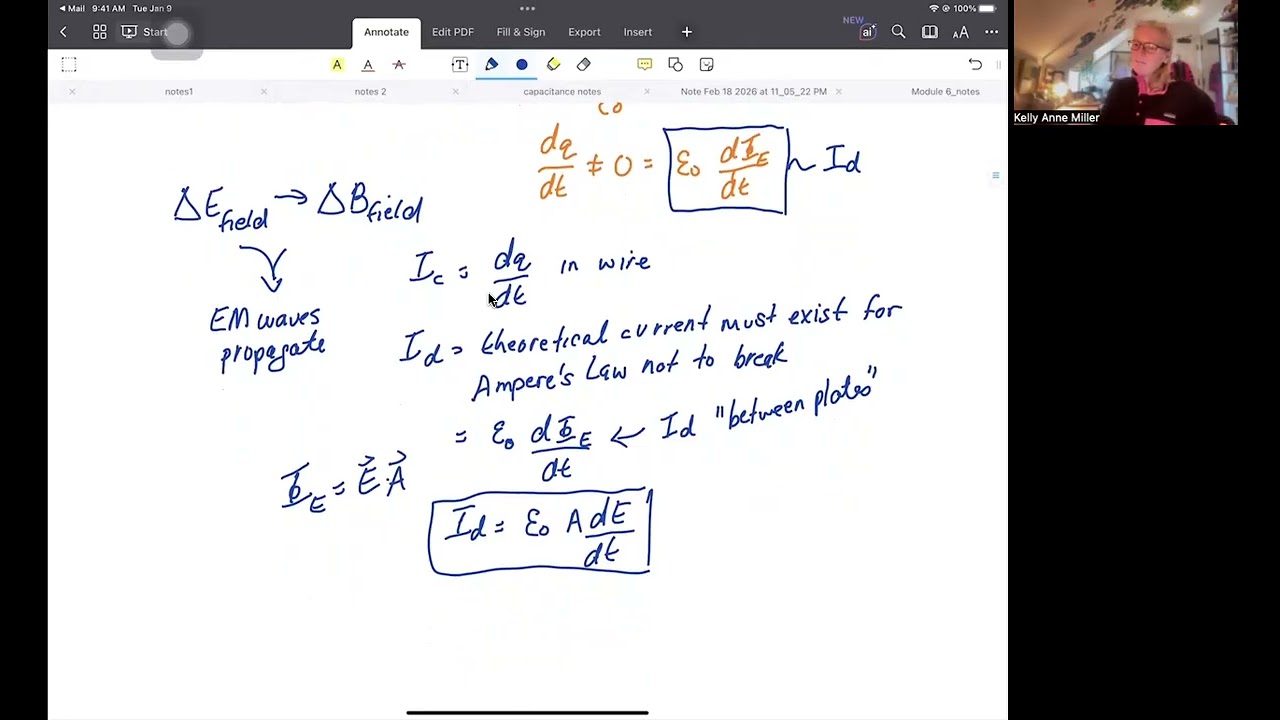 Mail 9:41 AM Tue Jan 9
100%
Start
Annotate Edit PDF Fill & Sign Export Insert
NEW
ai
AA
A A A T
notes1 notes 2 capacitance notes Note Feb 18 2026 at 11_05_22 PM Module 6_notes
Kelly Anne Miller
dq/dt ≠ 0 = ε₀ dΦ_E/dt ~ I_d
ΔE_field → ΔB_field
EM waves
propagate
I_c = dq/dt in wire
I_d = theoretical current must exist for
Ampere's Law not to break
= ε₀ dΦ_E/dt ← I_d "between plates"
Φ_E = E⃗·A⃗
I_d = ε₀ A dE/dt